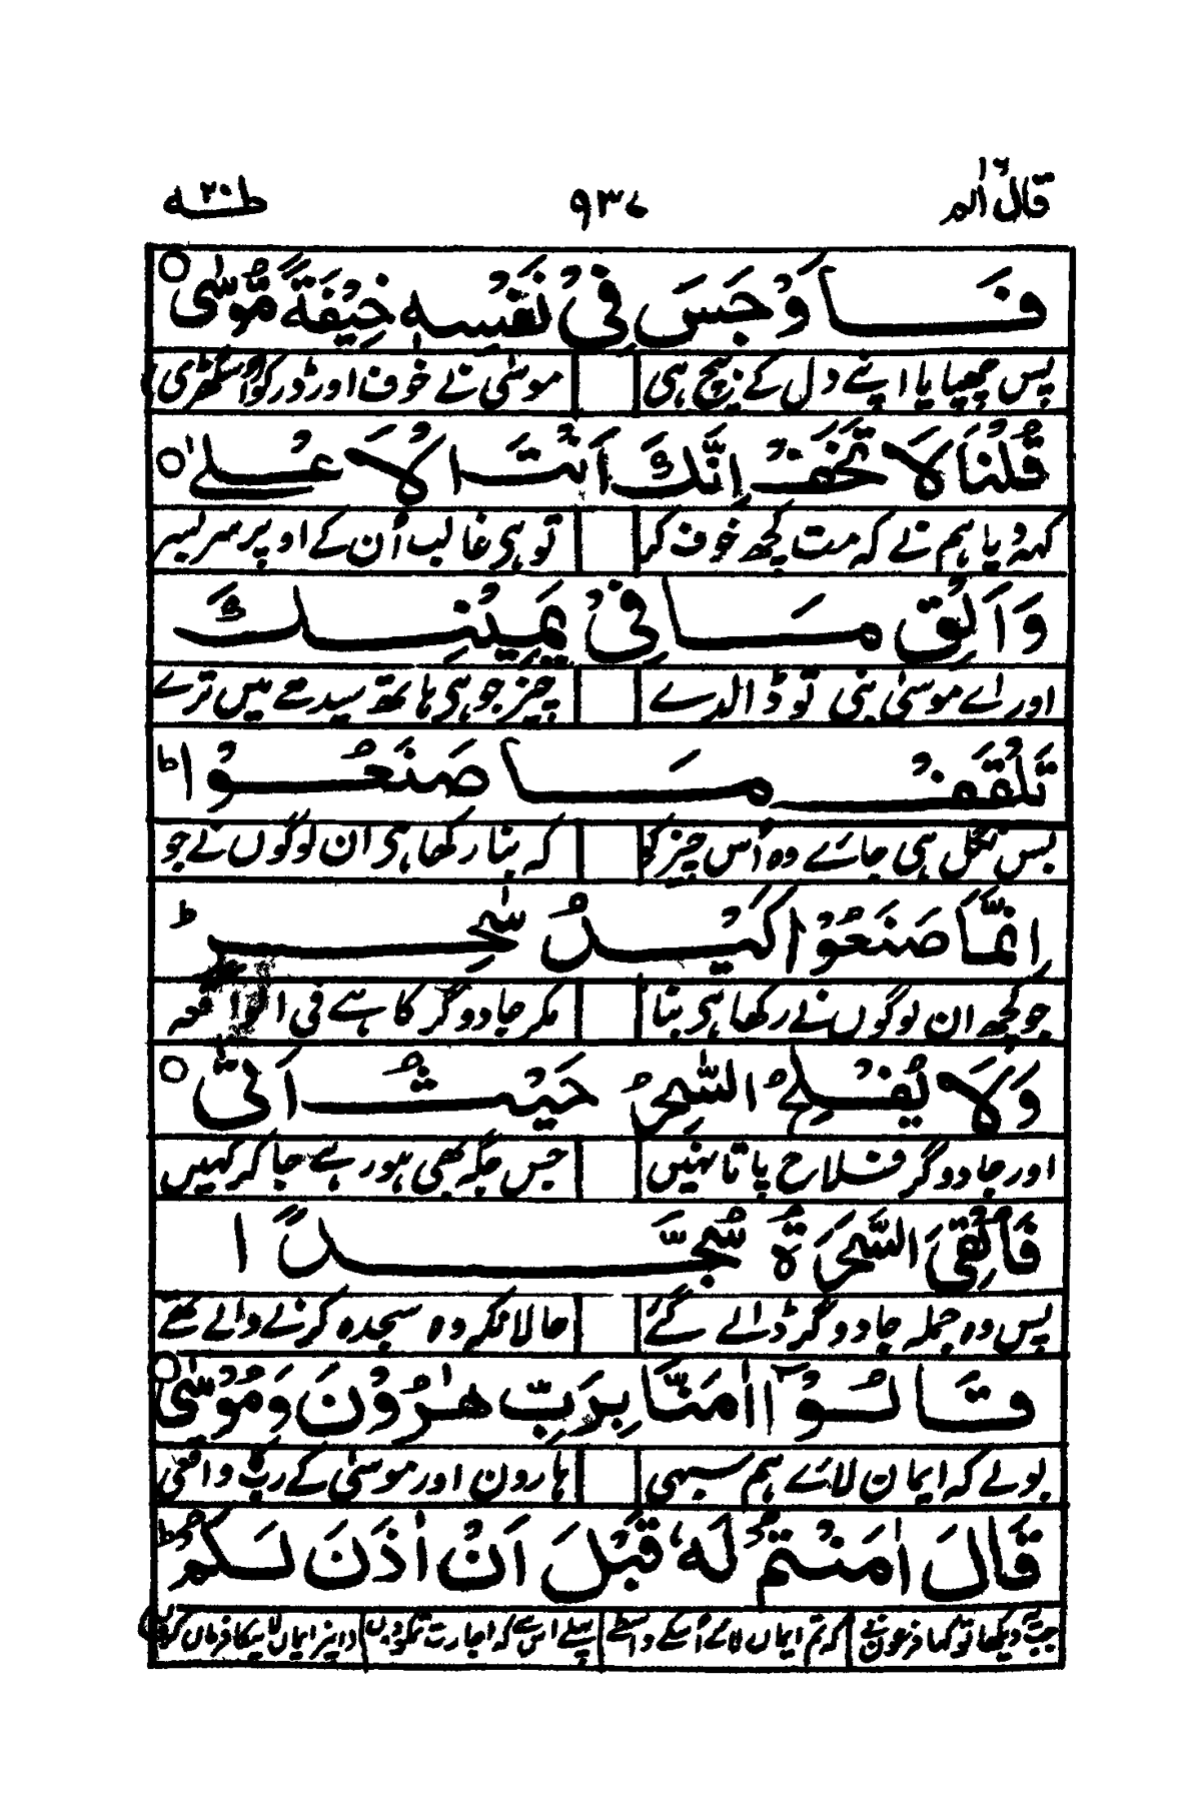 قال الم ١٦ ٩٣٧ طٰهٰ ٢٠
فَاَوْجَسَ فِیْ نَفْسِهٖ خِیْفَةً مُّوْسٰی ○
پس چھپایا اپنے دل کے بیچ ہی موسیٰ نے خوف اور ڈر کو اُس گھڑی
قُلْنَا لَا تَخَفْ اِنَّكَ اَنْتَ الْاَعْلٰی ○
کہہ دیا ہم نے کہ مت کچھ خوف کر تو ہی غالب اُن کے اوپر سر بسر
وَاَلْقِ مَا فِیْ یَمِیْنِكَ
اور اے موسیٰ نبی تو ڈالدے چیز جو ہی ہاتھ سیدھے میں ترے
تَلْقَفْ مَا صَنَعُوْا ط
بس نگل ہی جائے وہ اُس چیز کو کہ بنا رکھا ہی ان لوگوں نے جو
اِنَّمَا صَنَعُوْا كَیْدُ سٰحِرٍ ط
جو کچھ ان لوگوں نے رکھا ہی بنا مکر جادوگر کا ہے فی
وَلَا یُفْلِحُ السّٰحِرُ حَیْثُ اَتٰی ○
اور جادوگر فلاح پاتا نہیں جس جگہ بھی ہو رہے جا کر کہیں
فَاُلْقِیَ السَّحَرَةُ سُجَّدًا
پس وہ جملہ جادوگر ڈالے گئے حالانکہ وہ سجدہ کرنے والے تھے
قَالُوْۤا اٰمَنَّا بِرَبِّ هٰرُوْنَ وَمُوْسٰی ○
بولے کہ ایمان لائے ہم سبھی ہارون اور موسیٰ کے رب واقعی
قَالَ اٰمَنْتُمْ لَهٗ قَبْلَ اَنْ اٰذَنَ لَكُمْ ط
جب یہ دیکھا تو کہا فرعون نے کہ تم ایمان لائے اُسکے واسطے پہلے اس سے کہ اجازت تمکو دوں